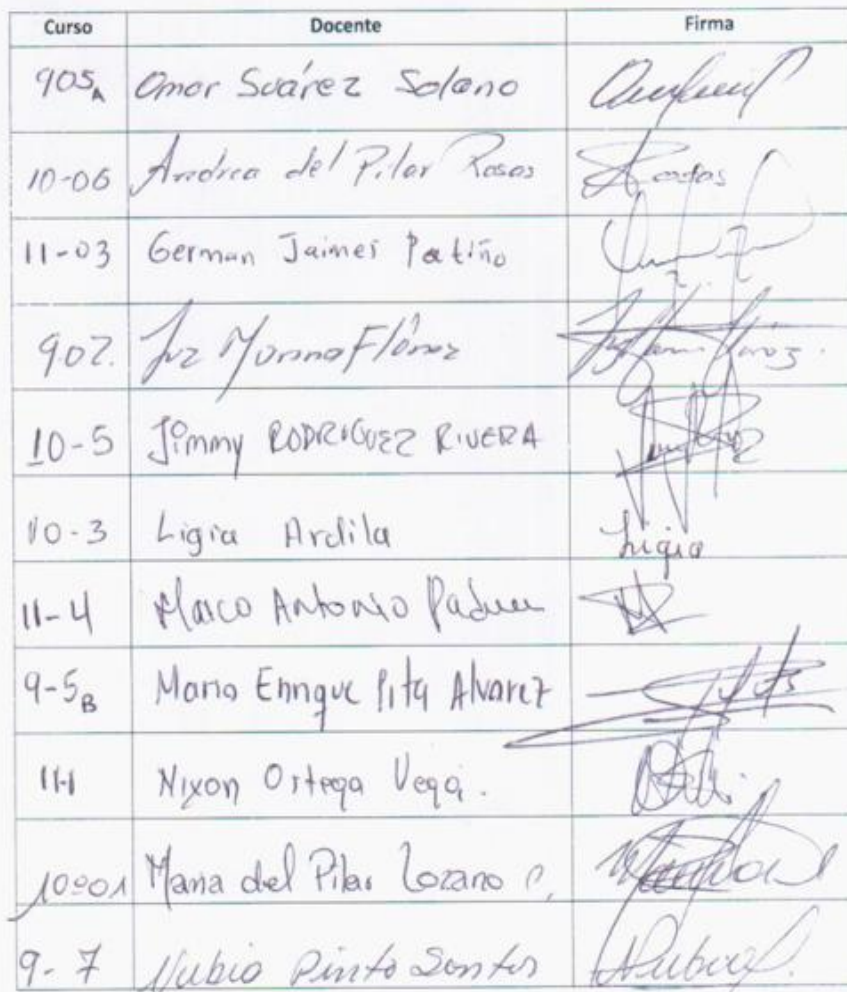 Curso Docente Firma
905A Omar Suárez Solano
10-06 Andrea del Pilar Rosas Rosas
11-03 German Jaimes Patiño
902. Luz Marina Flórez
10-5 Jimmy RODRIGUEZ RIVERA
10-3 Ligia Ardila Ligia
11-4 Marco Antonio
9-5B Mario Enrique Pita Alvarez
11-1 Nixon Ortega Vega.
10°01 Maria del Pilar Lozano P.
9-7 Nubia Pinto Santos Nubia